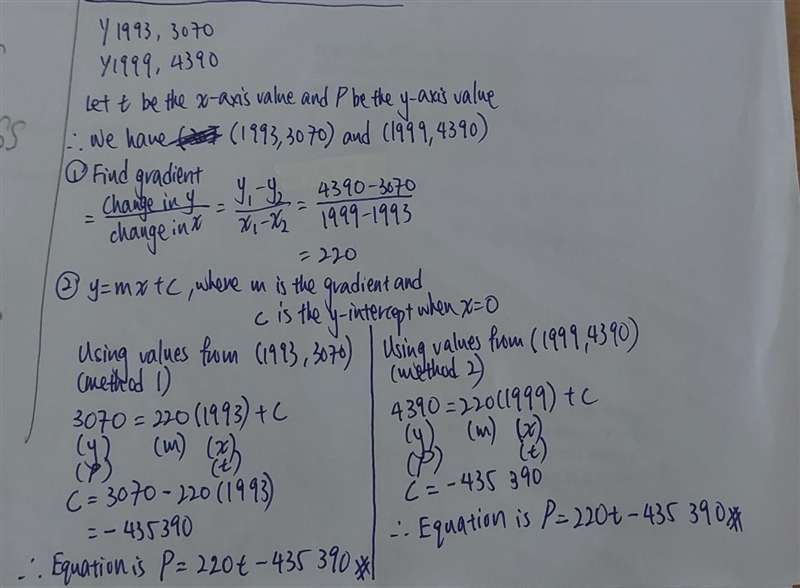 Y1993, 3070
Y1999, 4390
Let t be the x-axis value and P be the y-axis value
∴ We have (1993,3070) and (1999,4390)
① Find gradient
= change in y / change in x = y₁-y₂ / x₁-x₂ = 4390-3070 / 1999-1993
= 220
② y=mx+c, where m is the gradient and
c is the y-intercept when x=0
Using values from (1993,3070)
(method 1)
3070 = 220(1993)+C
(y) (m) (x)
(P) (t)
C = 3070-220(1993)
= -435390
∴ Equation is P=220t-435 390
Using values from (1999,4390)
(method 2)
4390=220(1999)+C
(y) (m) (x)
(P) (t)
C=-435 390
∴ Equation is P=220t-435 390